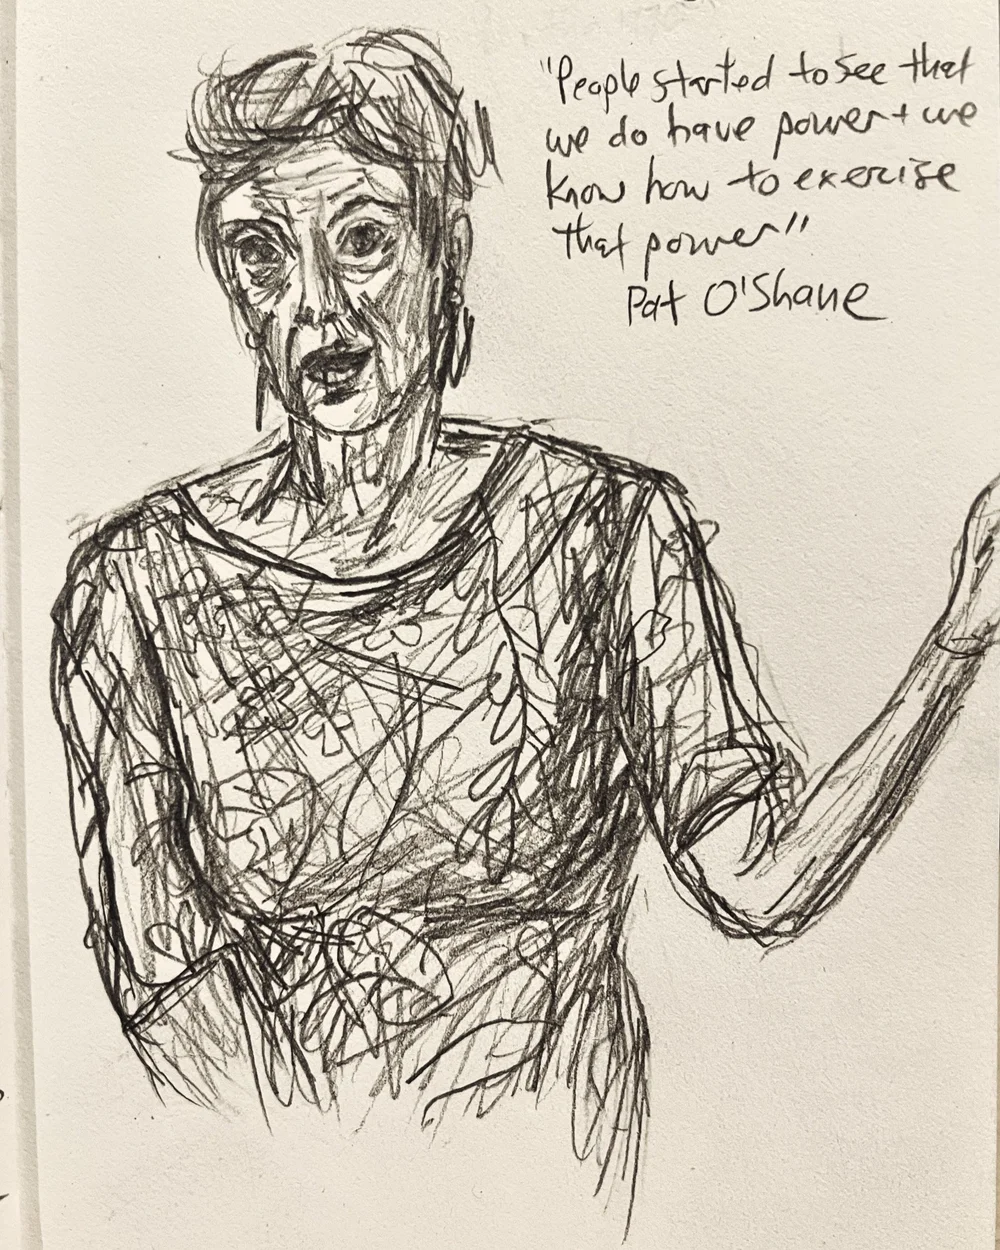 "People started to see that
we do have power + we
know how to exercise
that power"
Pat O'Shane